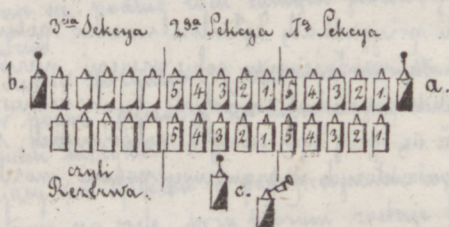 3cia Sekcya 2ga Sekcya 1a Sekcya
b. 5 4 3 2 1. 5 4. 3 2 1. a.
5 4 3 2 1. 5 4. 3 2 1.
czyli
Rezerwa. c.